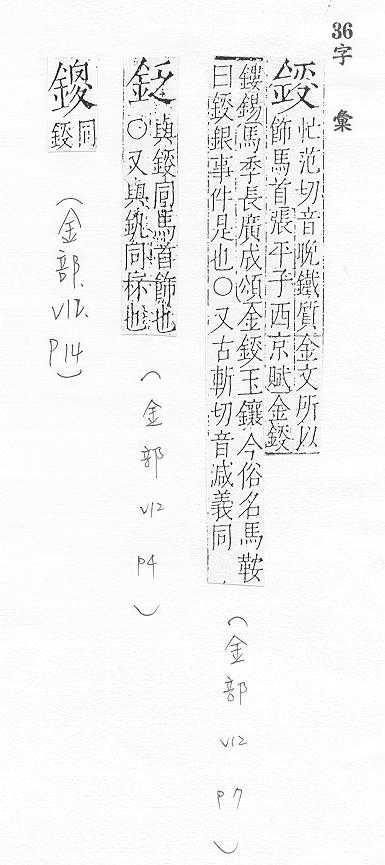 36字 彙
鋄
忙范切音晚鐵質金文所以
飾馬首張平子西京賦金鋄
鏤鍚馬季長廣成頌金鋄玉鑲今俗名馬鞍
曰鋄銀事件是也〇又古斬切音減義同
(金部 V12 P7)
與鋄同馬首飾也
〇又與銃同 也
(金部 V12 P4)
鍐
同
鋄
(金部、V12、P14)